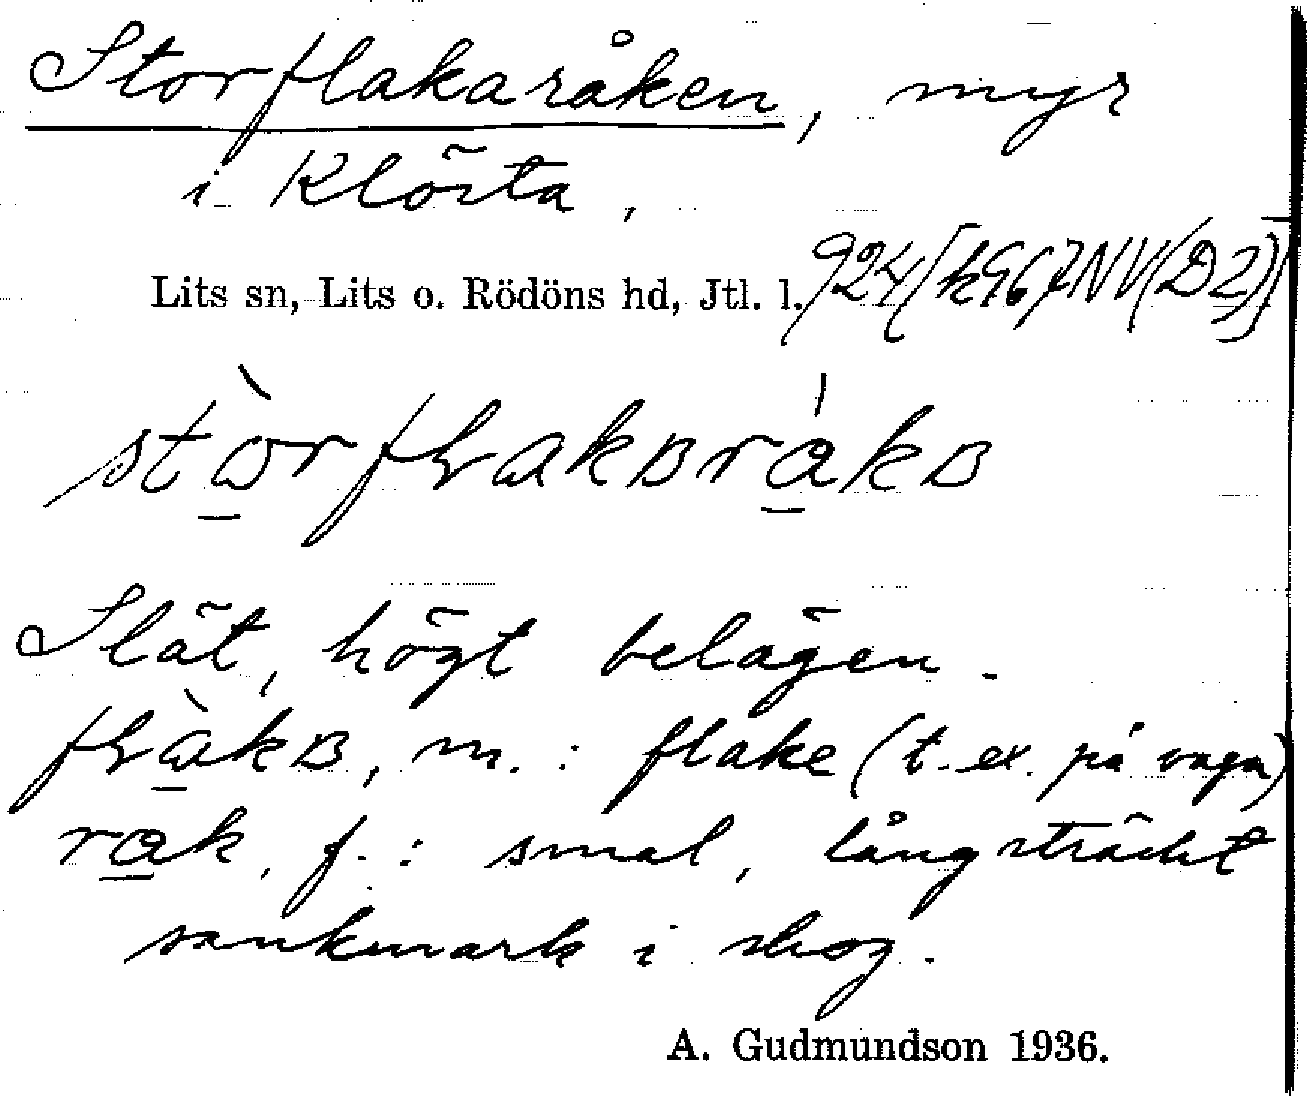 Storflakaråken, myr
i Klösta,
Lits sn, Lits o. Rödöns hd, Jtl. l. 924[k967NV(D2)]
Slät, högt belägen.
m.: flake (t. ex. på vagn)
f.: smal, långsträckt
sankmark i skog.
A. Gudmundson 1936.